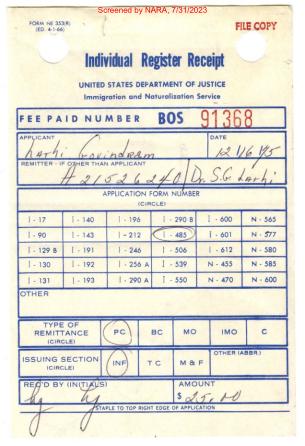 Screened by NARA, 7/31/2023
FORM NE 353(R)
(ED. 4-1-66)
FILE COPY
Individual Register Receipt
UNITED STATES DEPARTMENT OF JUSTICE
Immigration and Naturalization Service
FEE PAID NUMBER BOS 91368
APPLICANT DATE
Larhi Govindram 12/16/75
REMITTER - IF OTHER THAN APPLICANT
A 21526240 / Dr. S.G. Larhi
APPLICATION FORM NUMBER
(CIRCLE)
I - 17 I - 140 I - 196 I - 290 B I - 600 N - 565
I - 90 I - 143 I - 212 I - 485 I - 601 N - 577
I - 129 B I - 191 I - 246 I - 506 I - 612 N - 580
I - 130 I - 192 I - 256 A I - 539 N - 455 N - 585
I - 131 I - 193 I - 290 A I - 550 N - 470 N - 600
OTHER
TYPE OF REMITTANCE (CIRCLE) PC BC MO IMO C
ISSUING SECTION (CIRCLE) INF T C M & F OTHER (ABBR.)
REC'D BY (INITIALS) AMOUNT
$ 25.00
STAPLE TO TOP RIGHT EDGE OF APPLICATION